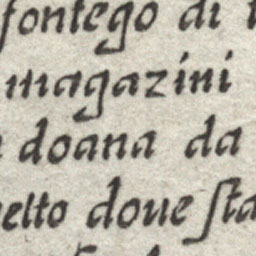 fontego di
magazini
doana da
doue sta